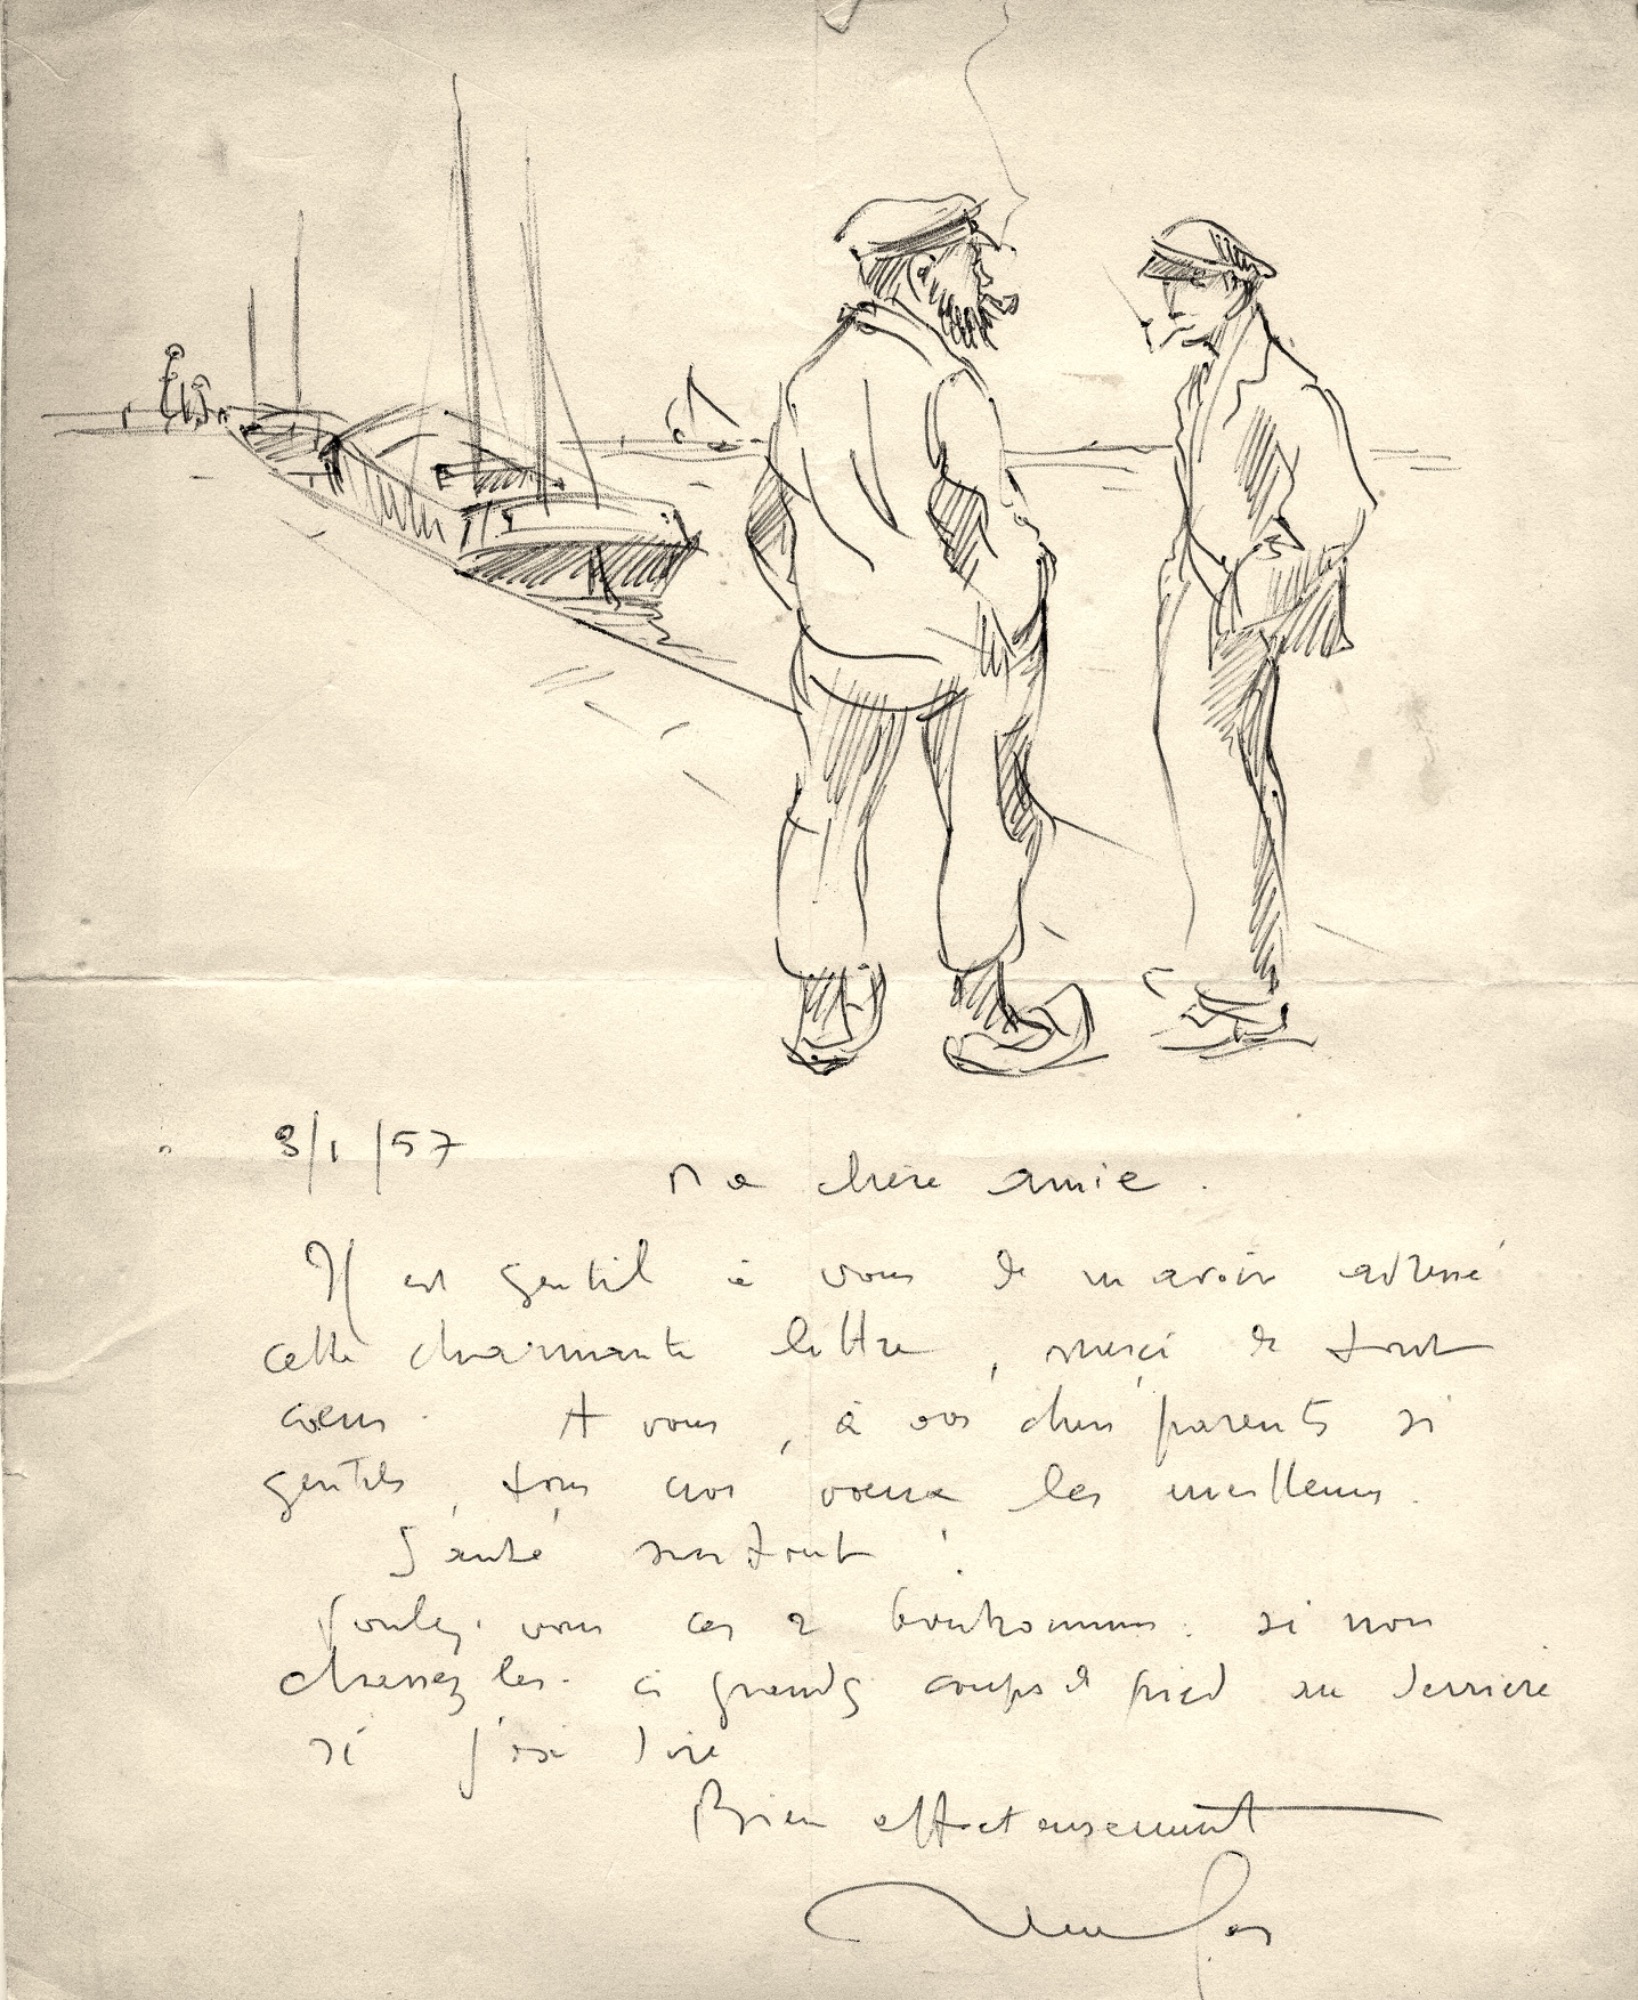 3/1/57
Ma chère amie.
Il est gentil à vous de m'avoir adressé
cette charmante lettre, merci de tout
coeur. A vous, à vos chers parents si
gentils, tous mes voeux les meilleurs.
Santé surtout !
Voulez-vous ces 2 bonhommes. si non
chassez les. à grands coups de pied au derrière
si j'ose dire
Bien affectueusement